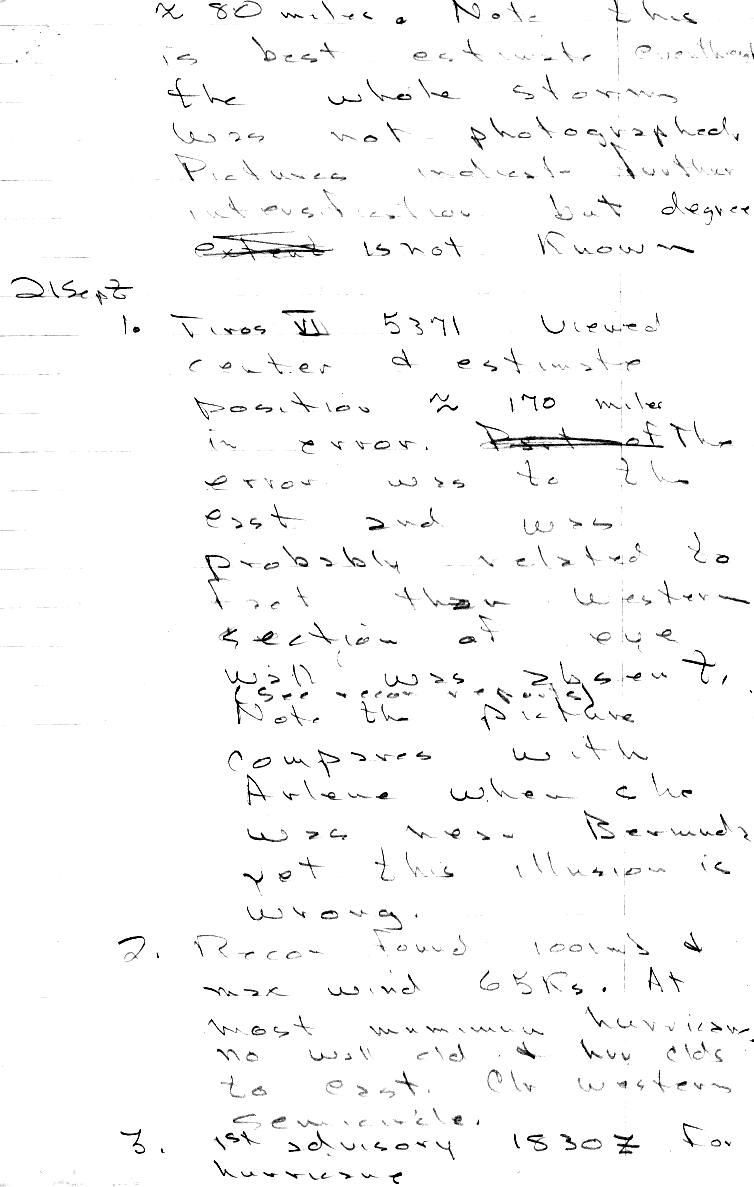 ≈ 80 miles. Note this
is best estimate eventhough
the whole storm
was not photographed.
Pictures indicate further
intensification but degree
extent is not known
21 Sept
1. Tiros VI 5371 viewed
center & estimate
position ≈ 170 miles
in error. Part of The
error was to the
east and was
probably related to
fact than western
section of eye
wall was absent.
(see recon reports)
Note the picture
compares with
Arlene when she
was near Bermuda
yet this illusion is
wrong.
2. Recon found 1001mb &
max wind 65Ks. At
most mumimum hurricane,
no wall cld & hvy clds
to east. Clr western
semicircle.
3. 1st advisory 1830Z for
hurricane